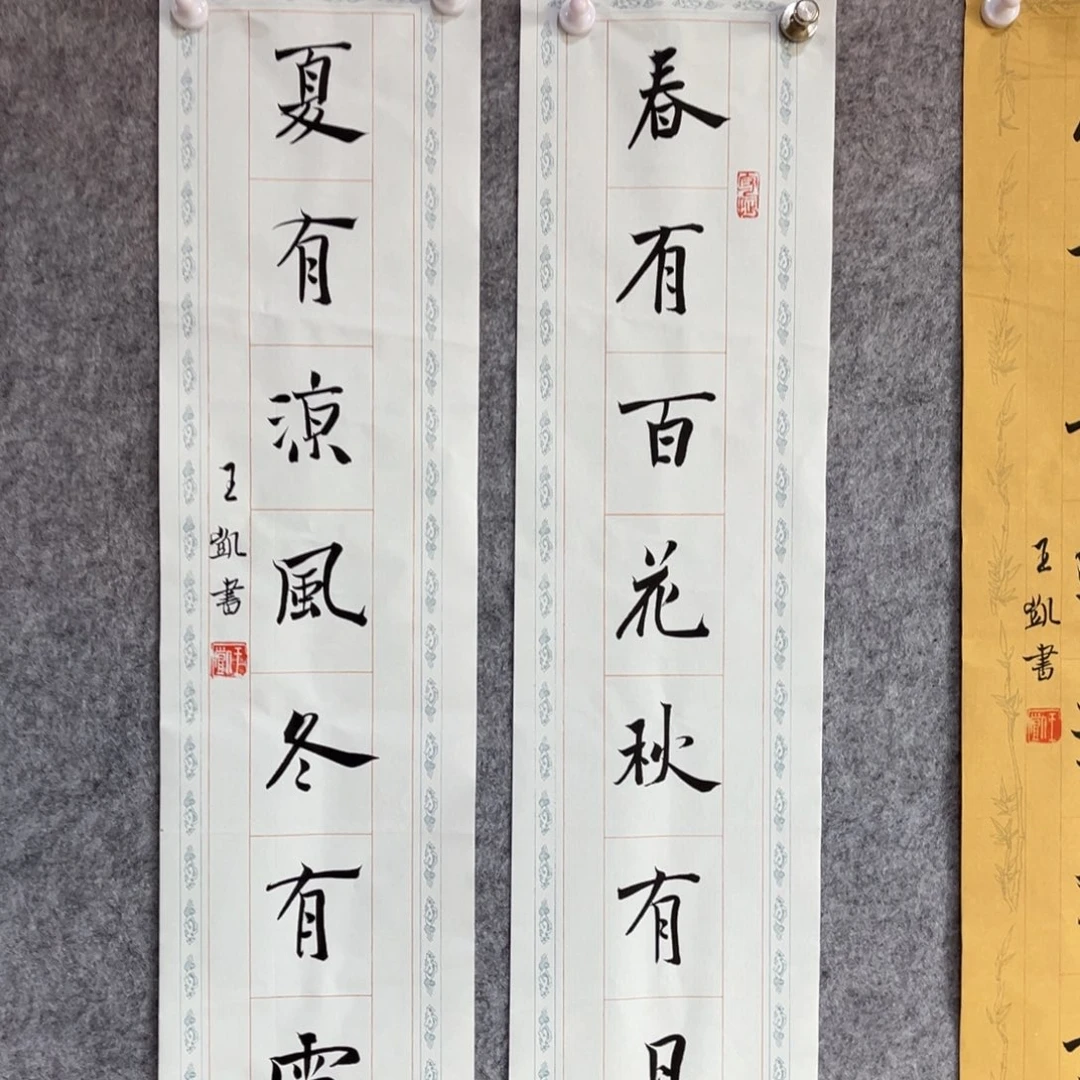 春有百花秋有月
夏有涼風冬有雪
王凱書
王凱書